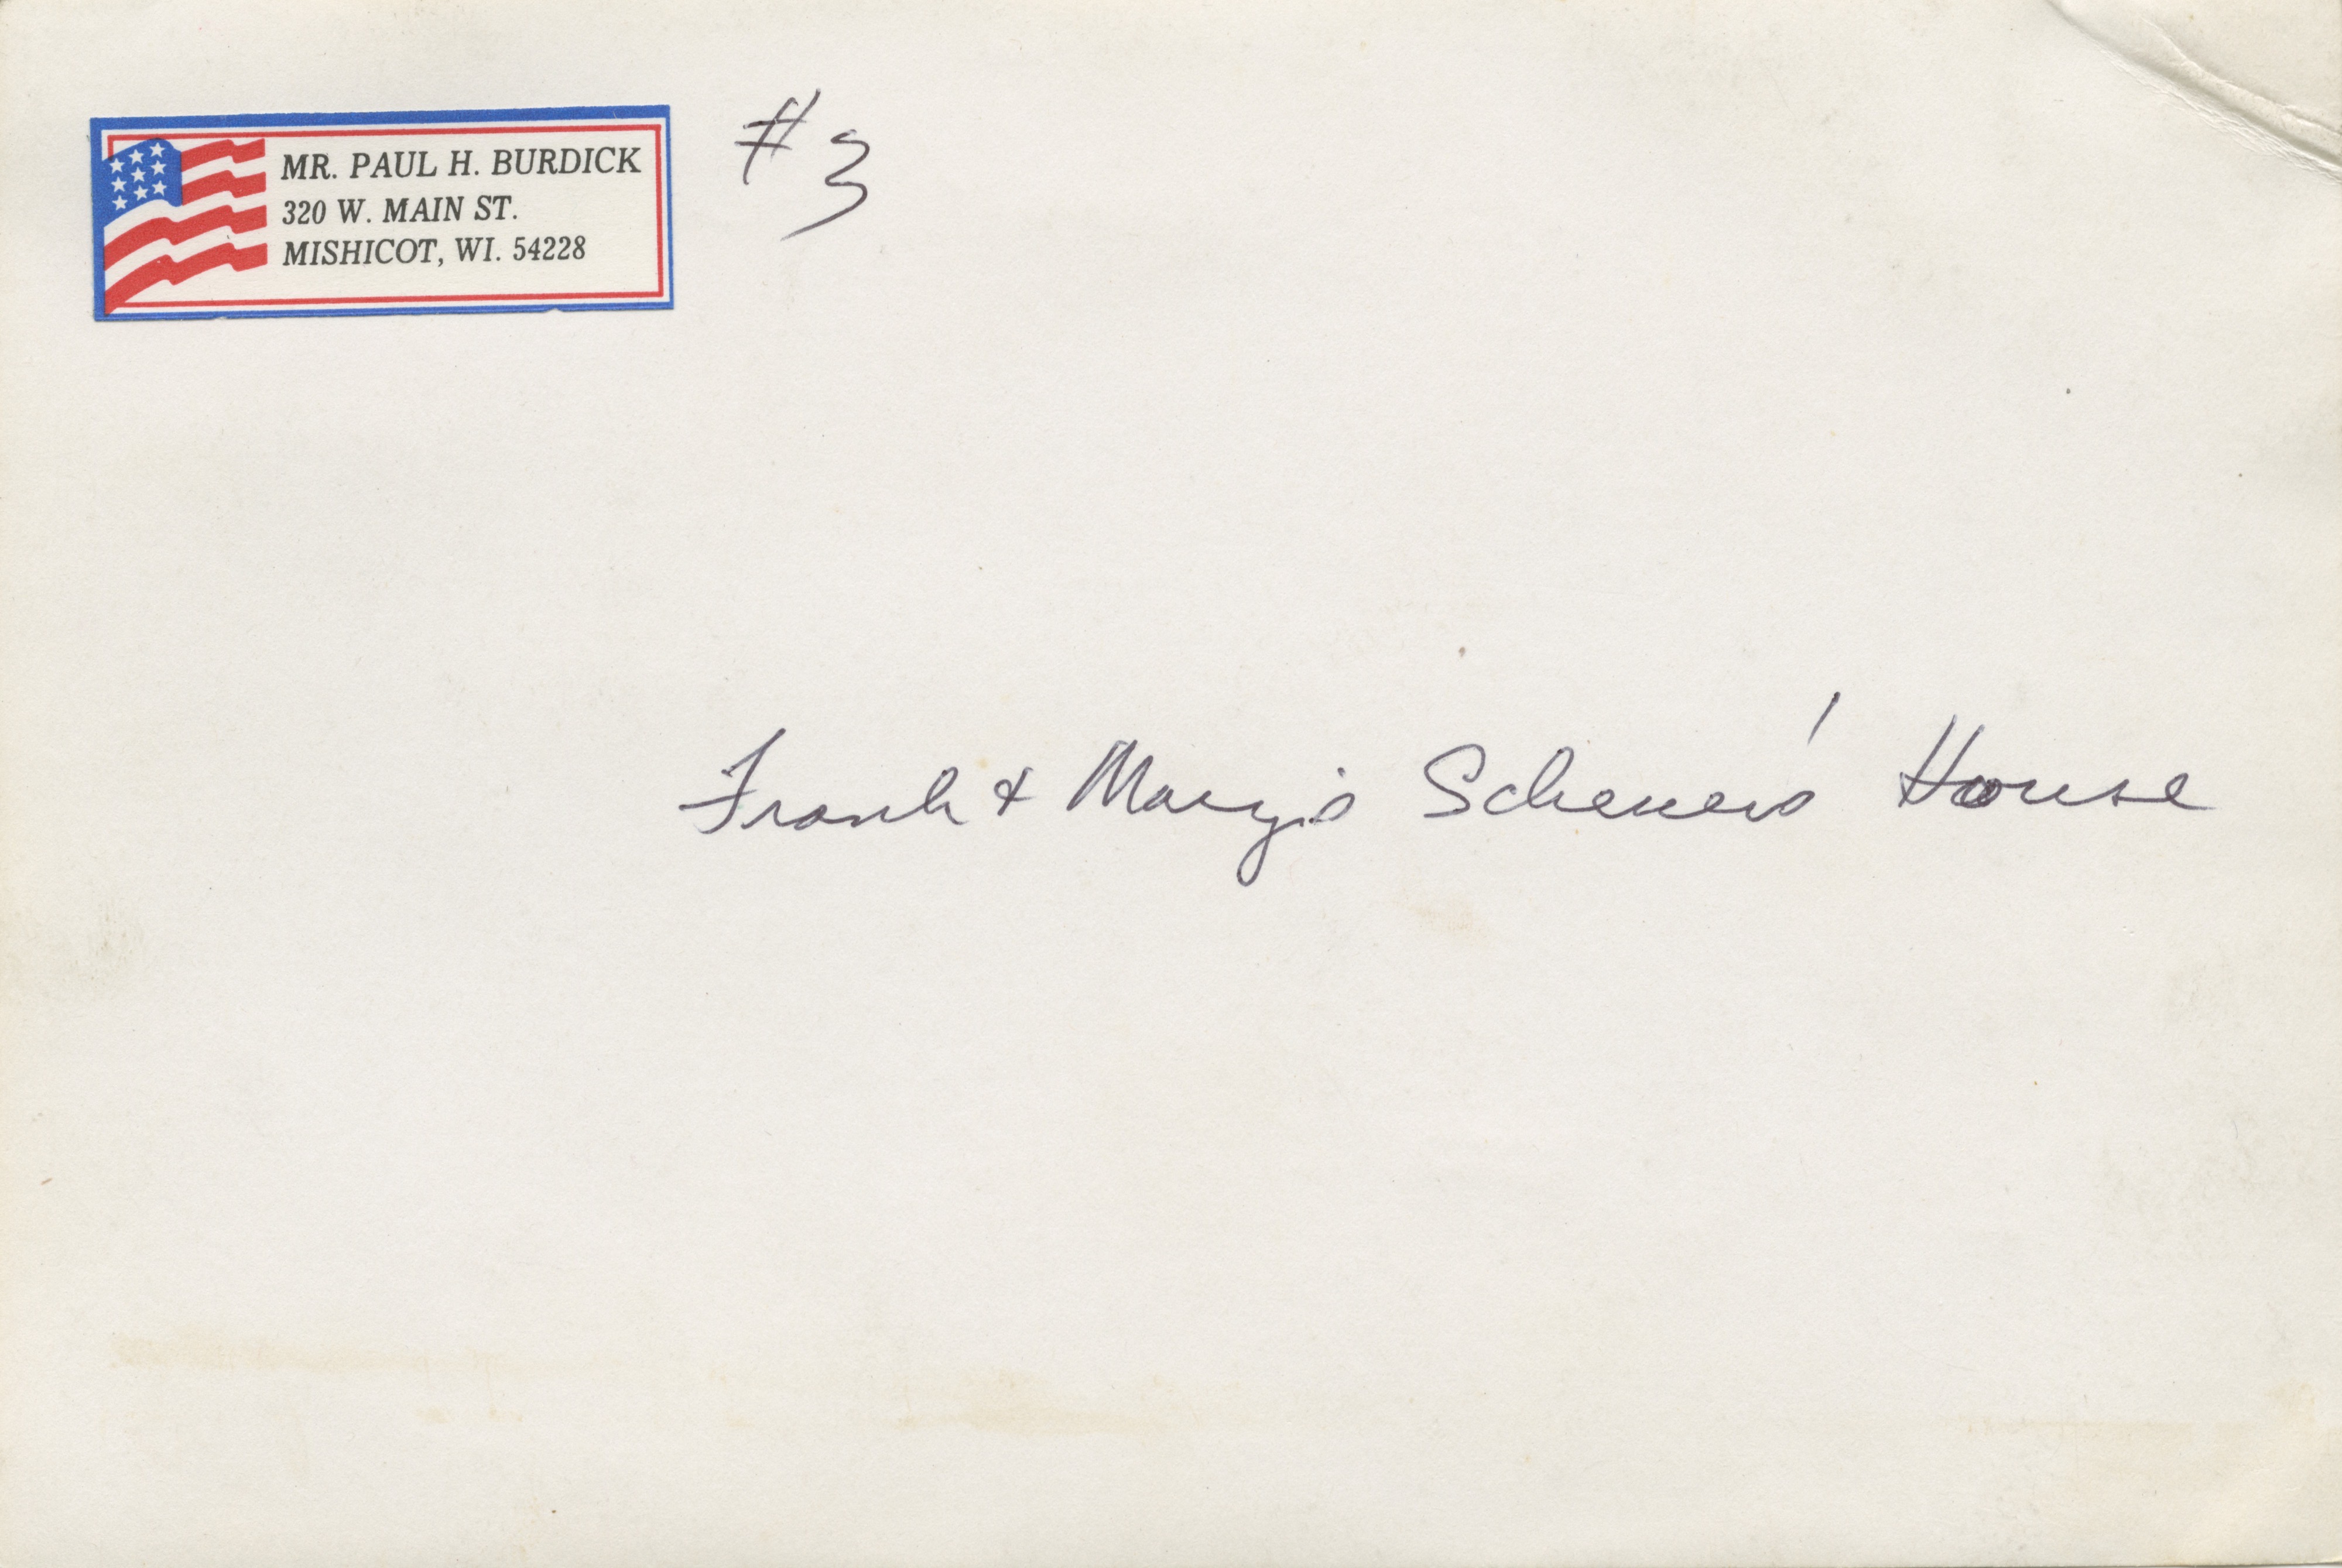 MR. PAUL H. BURDICK
320 W. MAIN ST.
MISHICOT, WI. 54228
#3
Frank & Margie House